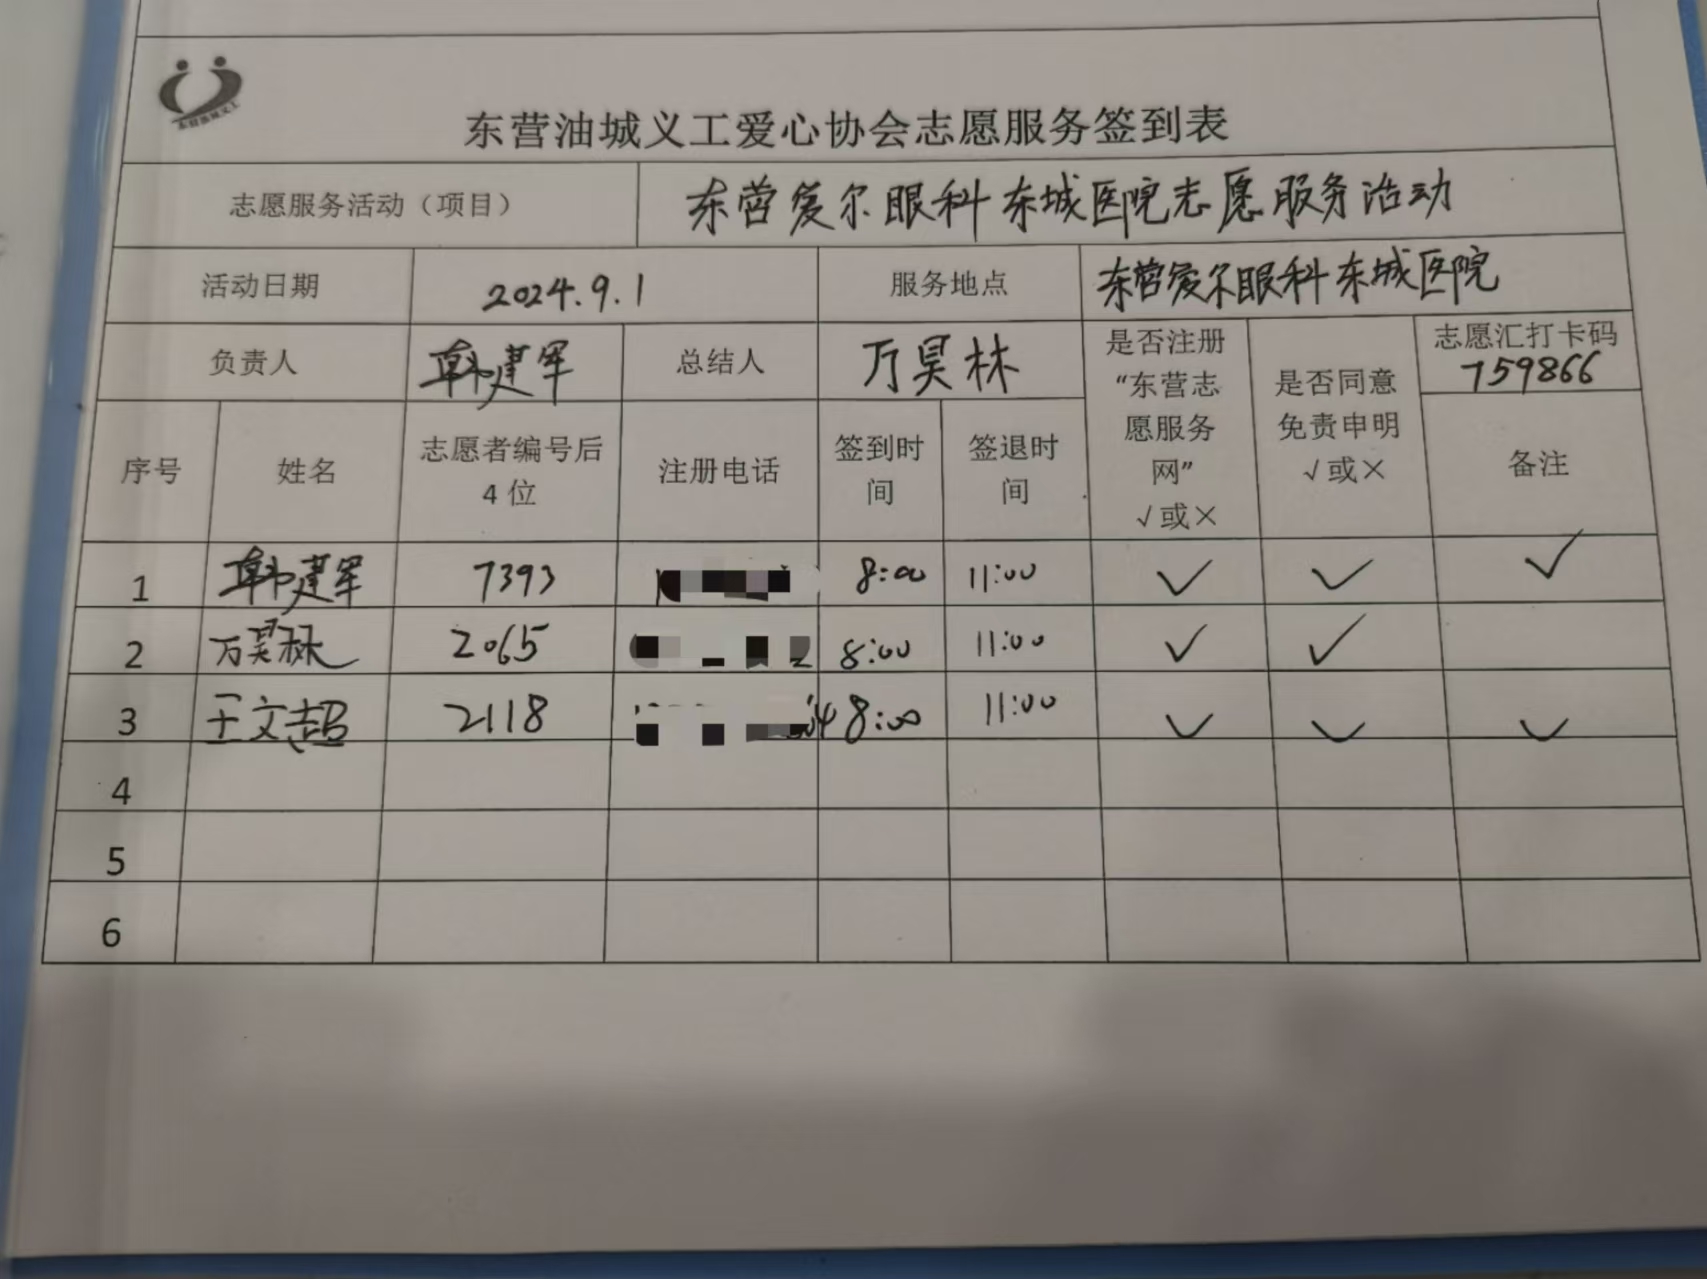 东营油城义工
东营油城义工爱心协会志愿服务签到表
志愿服务活动（项目） 东营爱尔眼科东城医院志愿服务活动
活动日期 2024.9.1 服务地点 东营爱尔眼科东城医院
负责人 韩建军 总结人 万昊林 是否注册“东营志愿服务网”√或× 是否同意免责申明√或× 志愿汇打卡码 759866
序号 姓名 志愿者编号后4位 注册电话 签到时间 签退时间 备注
1 韩建军 7393 8:00 11:00 √ √ √
2 万昊林 2065 8:00 11:00 √ √
3 王文超 2118 8:00 11:00 √ √ √
4
5
6